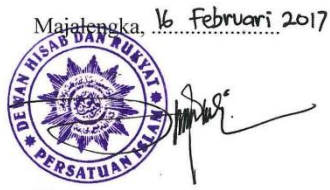 Majalengka, 16 Februari 2017
DEWAN HISAB DAN RUKYAT
PERSATUAN ISLAM